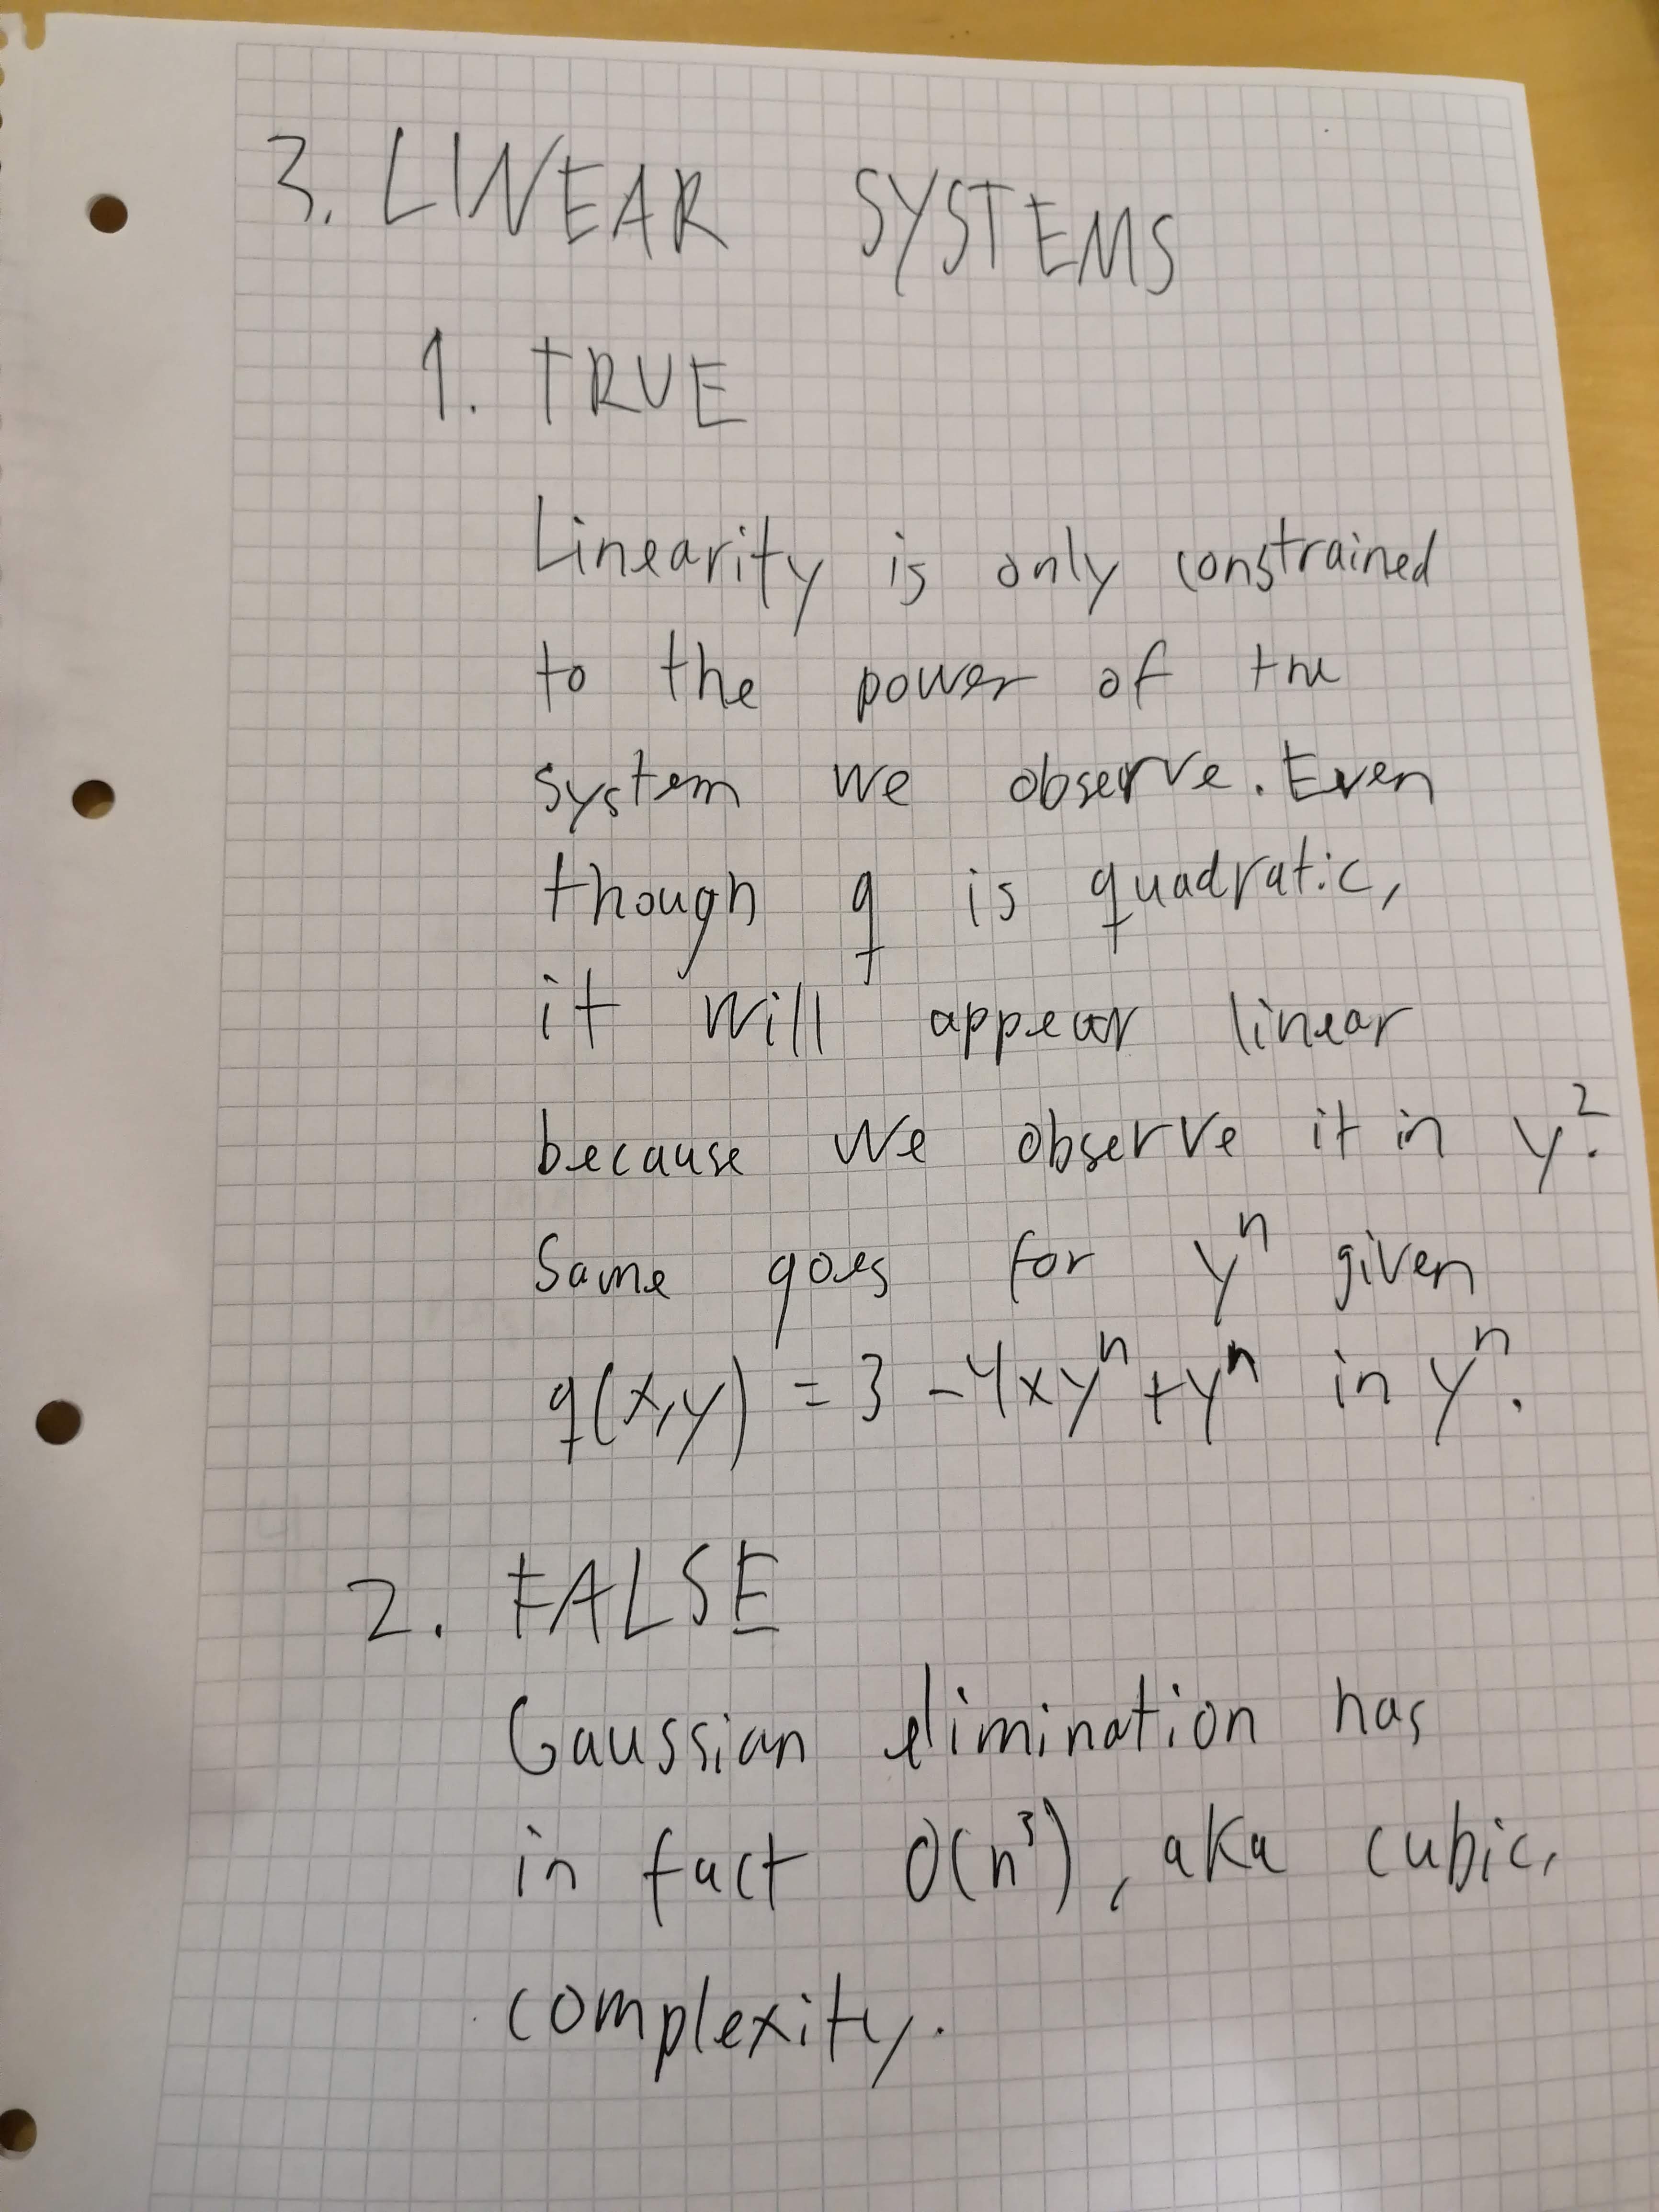 3. LINEAR SYSTEMS
1. TRUE
Linearity is only constrained
to the power of the
system we observe. Even
though q is quadratic,
it will appear linear
because we observe it in y².
Same goes for yⁿ given
q(x,y) = 3 - 4xyⁿ + yⁿ in yⁿ.
2. FALSE
Gaussian elimination has
in fact O(n³), aka cubic,
complexity.